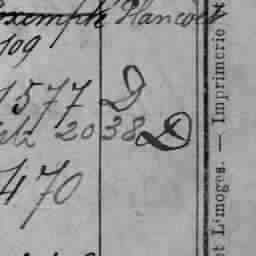 exempté Hancoët
109
1577 D
2038 D
470
et Limoges. — Imprimerie